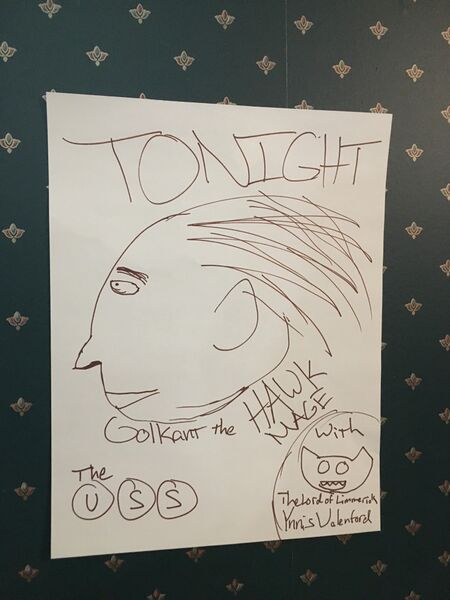 TONIGHT
Golkant the HAWK
MAGE
The
USS
With
The Lord of Limmerick
Ynnis Valenford